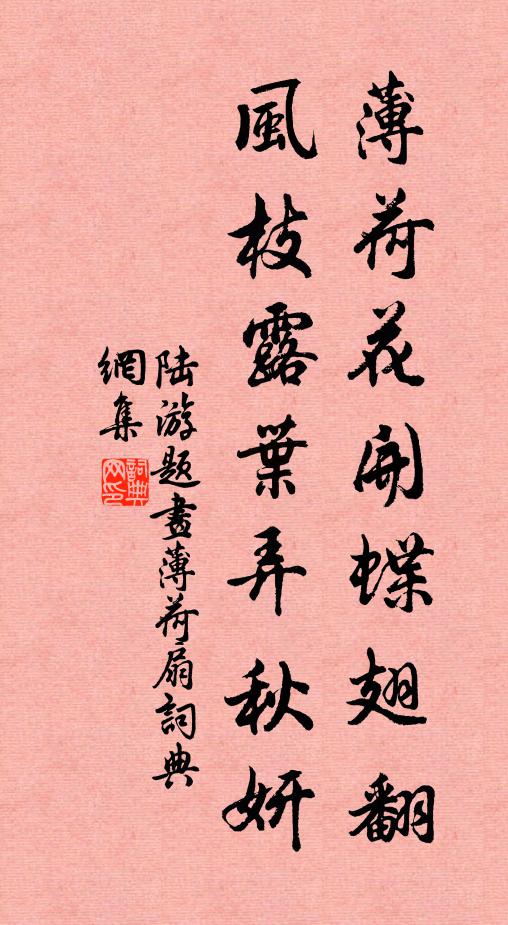 薄荷花開蝶翅翻
風枝露葉弄秋妍
陆游题畫薄荷扇詞典
網集
詞典
网印